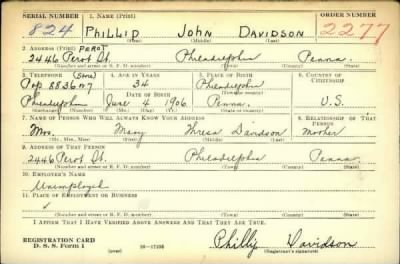 SERIAL NUMBER 1. NAME (Print) ORDER NUMBER
824 PHILLIP JOHN DAVIDSON 2277
(First) (Middle) (Last)
2. ADDRESS (Print) PEROT
2446 Perot St. Philadelphia Penna.
(Number and street or R. F. D. number) (Town) (County) (State)
3. TELEPHONE (Store) 4. AGE IN YEARS 5. PLACE OF BIRTH 6. COUNTRY OF CITIZENSHIP
Pop 8836 34 Philadelphia
DATE OF BIRTH (Town or county)
Philadelphia June 4 1906 Penna. U.S.
(Exchange) (Number) (Mo.) (Day) (Yr.) (State or country)
7. NAME OF PERSON WHO WILL ALWAYS KNOW YOUR ADDRESS 8. RELATIONSHIP OF THAT PERSON
Mrs. Mary Davidson Mother
(Mr., Mrs., Miss) (First) (Middle) (Last)
9. ADDRESS OF THAT PERSON
2446 Perot St. Philadelphia Penna
(Number and street or R. F. D. number) (Town) (County) (State)
10. EMPLOYER'S NAME
Unemployed
11. PLACE OF EMPLOYMENT OR BUSINESS
(Number and street or R. F. D. number) (Town) (County) (State)
I AFFIRM THAT I HAVE VERIFIED ABOVE ANSWERS AND THAT THEY ARE TRUE.
REGISTRATION CARD
D. S. S. Form 1 (over) 16—17105 Philly Davidson